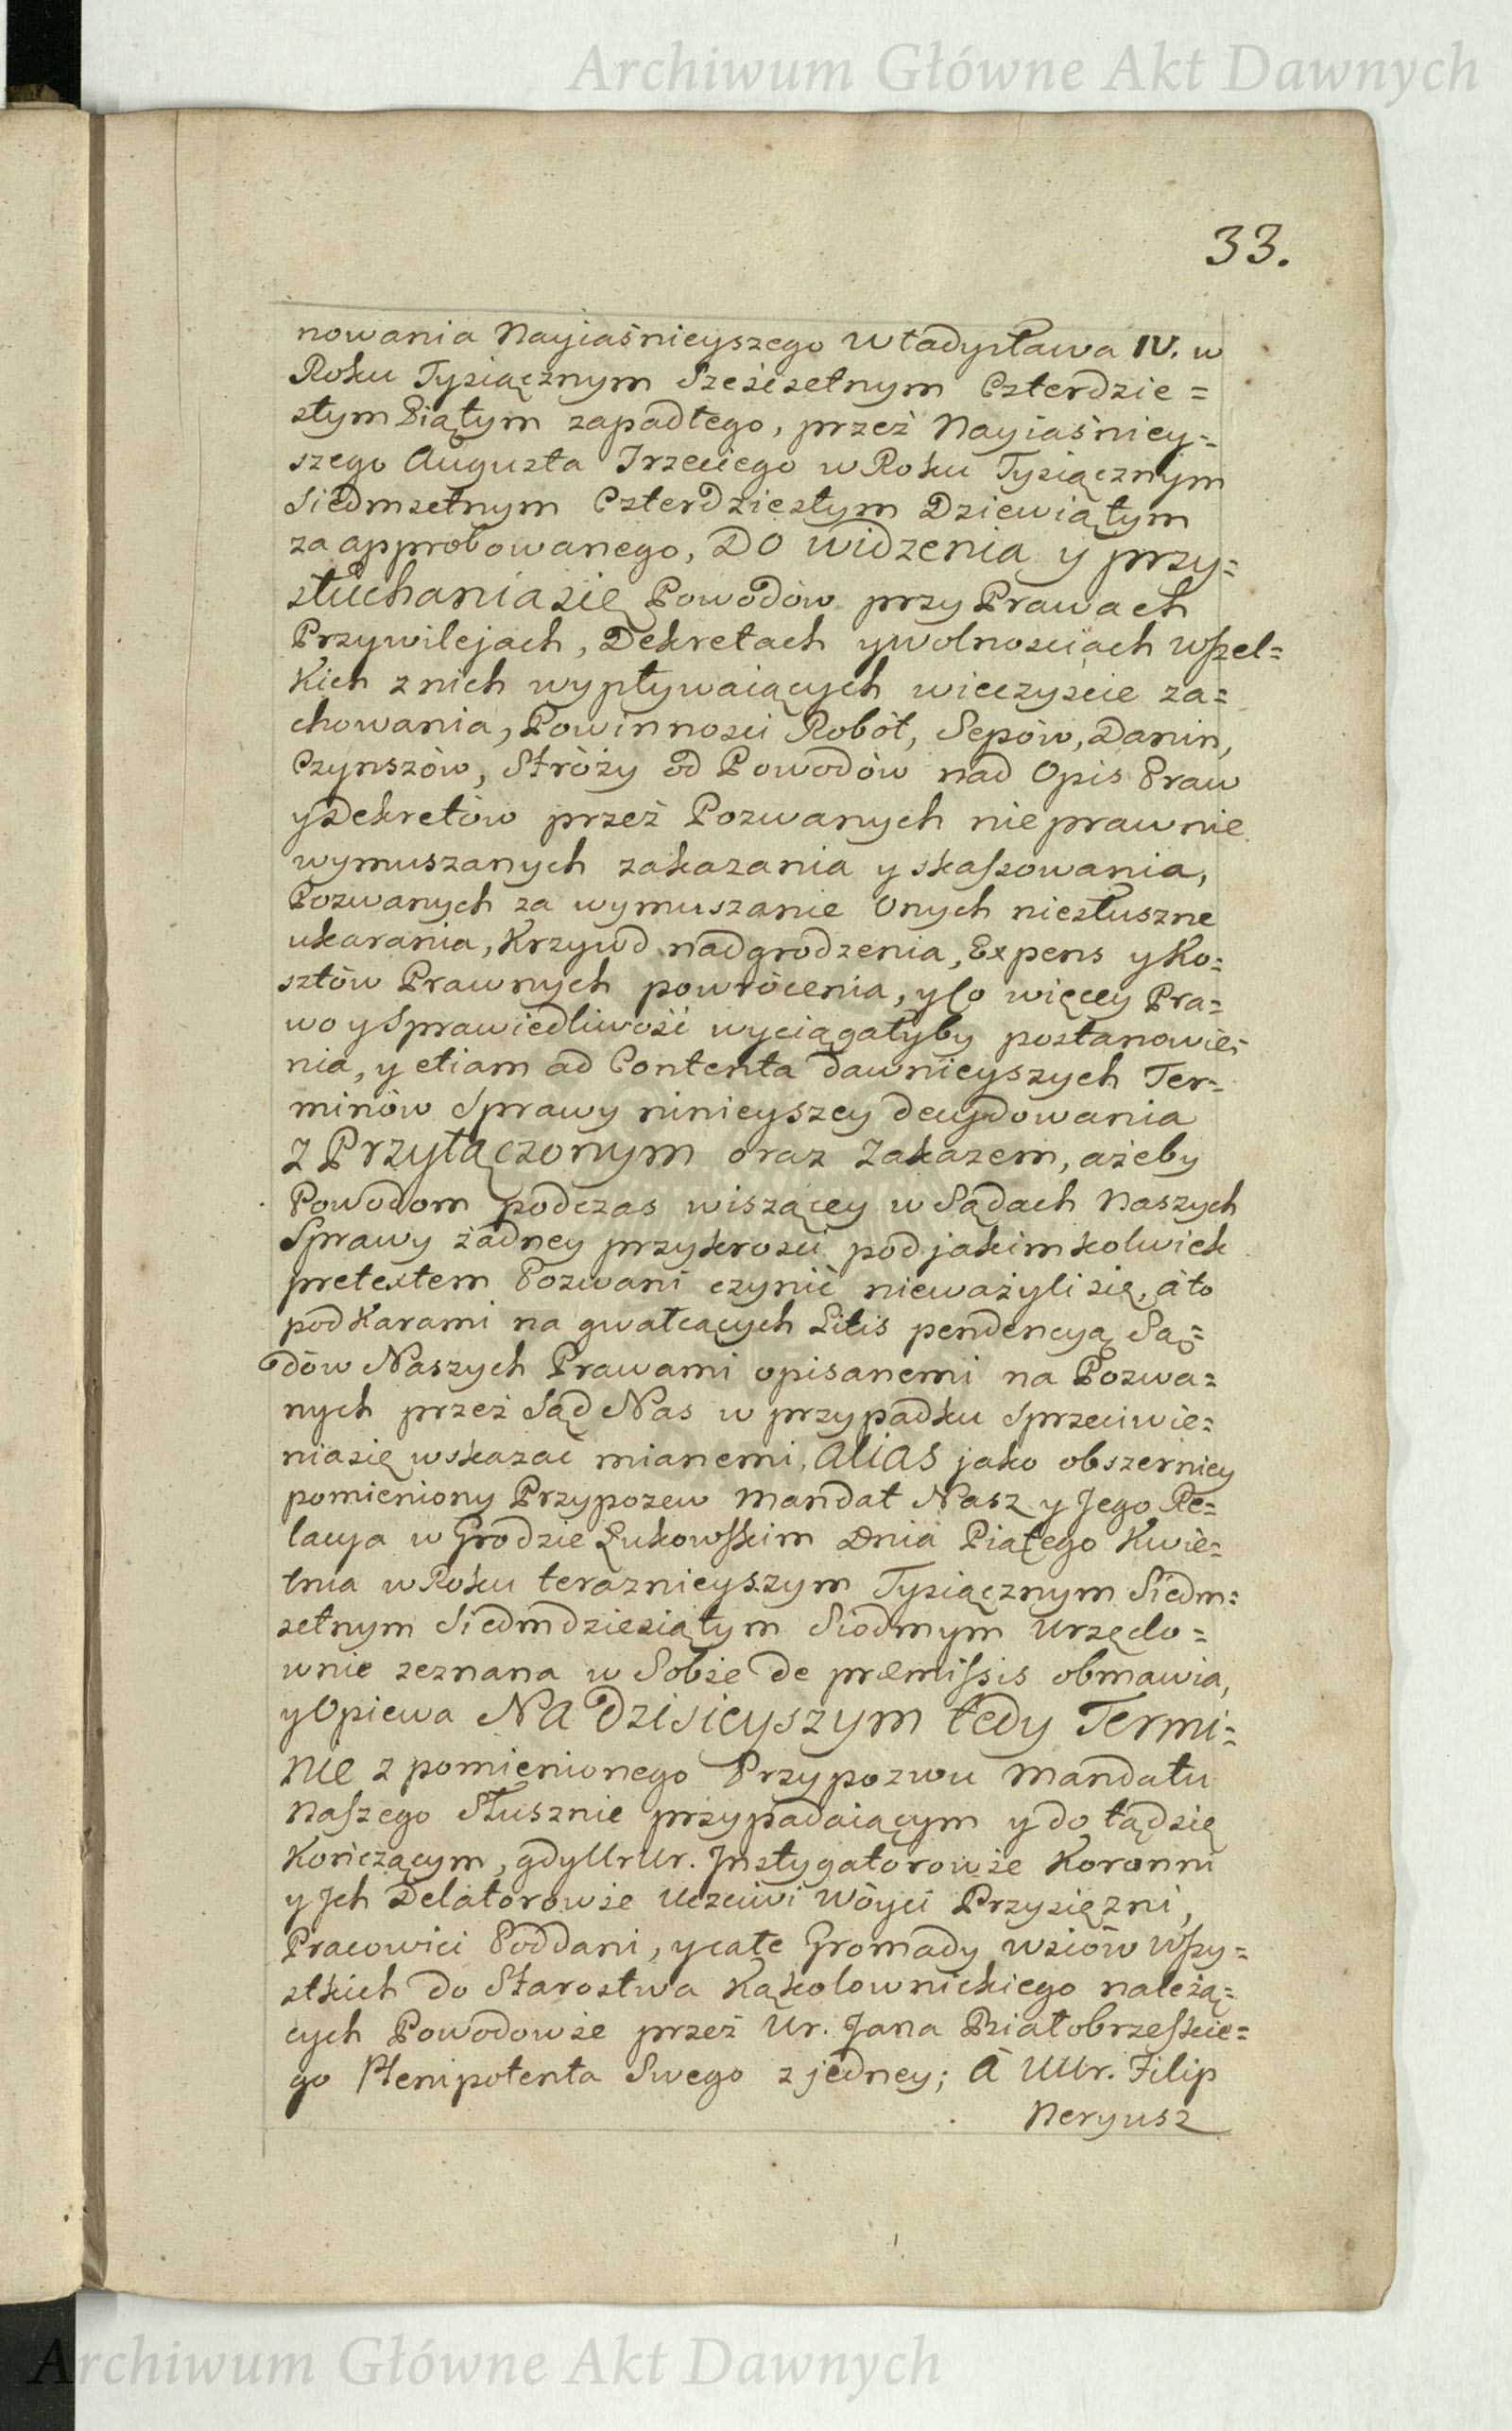 Archiwum Główne Akt Dawnych
33.
nowania Nayiaśnieyszego Władysława IV. w
Roku Tysiącznym Sześćsetnym Czterdzie=
stym Piątym zapadłego, przez Nayiaśniey=
szego Augusta Trzeciego w Roku Tysiącznym
Siedmsetnym Czterdziestym Dziewiątym
za approbowanego, Do widzenia y przy=
słuchania się Powodów przy Prawach
Przywilejach, Dekretach y wolnosciach wszel=
kich z nich wypływaiących wieczyscie za=
chowania, Powinnosci Robót, Sepów, Danin,
Czynszów, Stróży od Powodów nad Opis Praw
y Dekretów przez Pozwanych nieprawnie
wymuszanych zakazania y skassowania,
Pozwanych za wymuszanie Onych niesłuszne
ukarania, Krzywd nadgrodzenia, Expens y Ko=
sztów Prawnych powrócenia, y co więcey Pra=
wo y Sprawiedliwość wyciągałyby postanowie=
nia, y etiam ad Contenta dawnieyszych Ter=
minów Sprawy ninieyszey decydowania
z Przyłączonym oraz Zakazem, ażeby
Powodom podczas wiszącey w Sądach Naszych
Sprawy żadney przykrosci pod jakimkolwiek
pretextem Pozwani czynić nieważyli się, á to
pod Karami na gwałcących Litis pendencyą Są=
dów Naszych Prawami opisanemi na Pozwa=
nych przez Sąd Nas w przypadku Sprzeciwie=
nia się wskazać mianemi, alias jako obszerniey
pomieniony Przypozew Mandat Nasz y Jego Re=
lacya w Grodzie Łukowskim Dnia Piątego Kwie=
tnia w Roku teraznieyszym Tysiącznym Siedm=
setnym Siedmdziesiątym Siodmym Urzędo=
wnie zeznana w Sobie de præmissis obmawia,
y Opiewa Na Dzisieyszym tedy Termi=
nie z pomienionego Przypozwu Mandatu
Naszego Słusznie przypadaiącym y do tąd się
Kończącym, gdy UrUr. Instygatorowie Koronni
y Jch Delatorowie Uczciwi Wóyci Przysiężni,
Pracowici Poddani, y całe Gromady wsiów wszy=
stkich do Starostwa Kąkolownickiego należą=
cych Powodowie przez Ur. Jana Białobrzeskie=
go Plenipotenta Swego z jedney; á UUr. Filip
Neryusz
Archiwum Główne Akt Dawnych